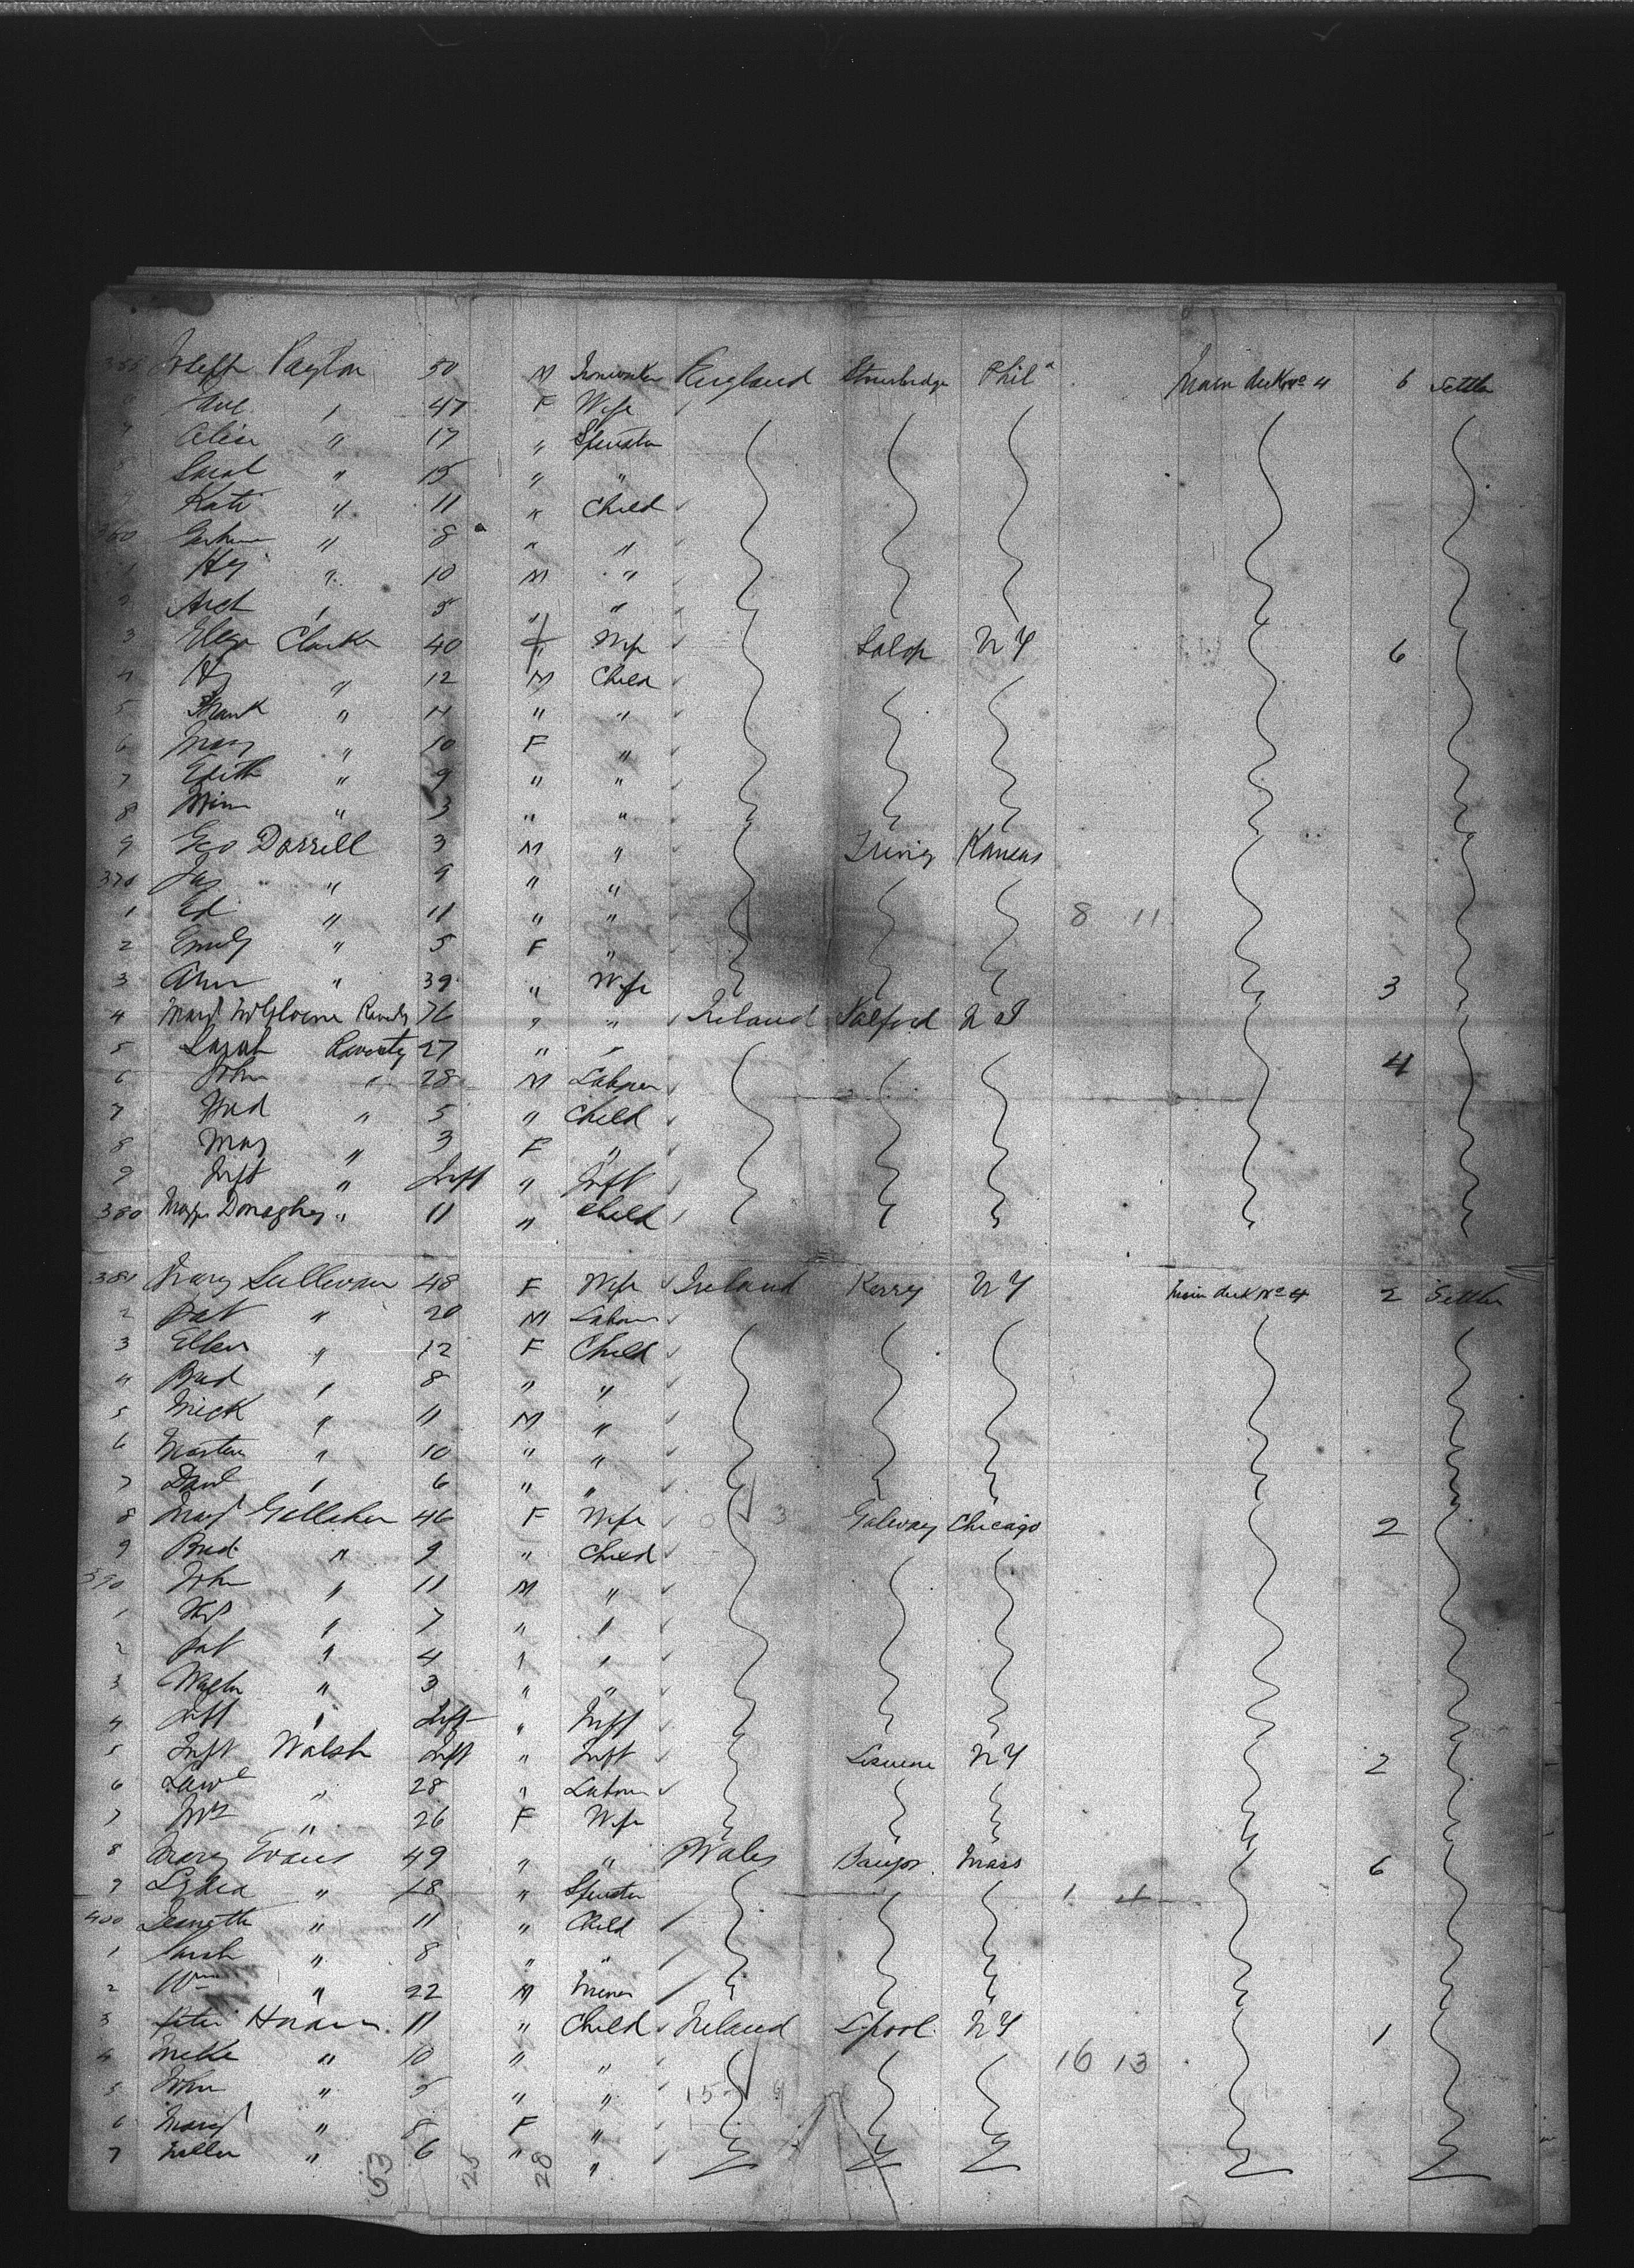 355 Joseph Payton 50 M Ironworker England Stourbridge Phil a Main deck No 4 6 Settler
" 47 F Wife
7 Alice " 17 " Spinster
8 Sarah " 15 " "
9 Kate " 11 " Child
360 " 8 " "
1 Hy " 10 M "
2 " " "
3 Eliza Clarke 40 " Wife Salop N Y 6
4 Hy " 12 M Child
5 Frank " 11 " "
6 Mary " 10 F "
7 Edith " 9 " "
8 Minn " 3 " "
9 Geo Darrell 3 M " Kansas
370 Jas " 9 " "
1 Ed " 11 " " 8 11
2 Emily " 5 F "
3 Ann " 39 " Wife 3
4 Margt 76 " " Ireland N J
5 Sarah Raverty 27 " " 4
6 John " 28 M Labourer
7 " 5 " Child
8 Mary " 3 F "
9 Inft " Inft " Inft
380 Donaghey " 11 " Child
381 Mary Sullivan 48 F Wife Ireland Kerry N Y Main deck No 4 2 Settler
2 Pat " 20 M Labour
3 Ellen " 12 F Child
4 Brid " 8 " "
5 Mick " 11 M "
6 Martin " 10 " "
7 Danl " 6 " "
8 Margt Gallaher 46 F Wife 0 3 Galway Chicago 2
9 Brid " 9 " Child
390 John " 11 M "
1 " 7 " "
2 Pat " 4 " "
3 Walter " 3 " "
4 Inft " Inft " Inft
5 Inft Walsh Inft " Inft Lismore N Y 2
6 Lawe " 28 " Labour
7 Mrs " 26 F Wife
8 Mary Evans 49 " " Wales Bangor Mass 6
9 Lydia " 18 " Spinster 1 4
400 " 11 " Child
1 Sarah " 8 " "
2 Wm " 22 M Miner
3 Peter 11 " Child Ireland Lpool N Y 1
4 Mike " 10 " " 16 13
5 John " 5 " " 15 9
6 Margt " 8 F "
7 " 6 " "
53 25 28